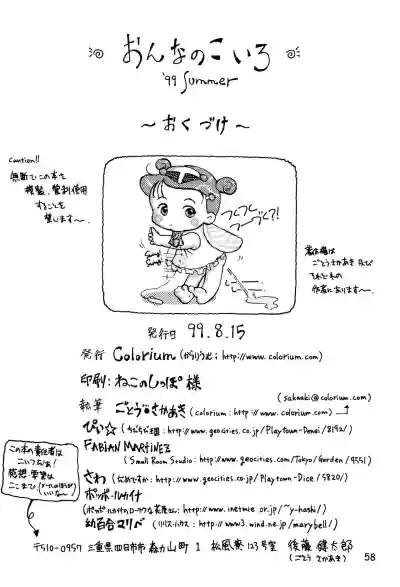 おんなのこいろ
'99 Summer
〜おくづけ〜
Caution!!
無断でこの本を
複製、営利使用
することを
禁じます〜。
つくつく
つーづく?!
著作権は
ごとうさかあき 及び
それぞれの
作者にあります〜。
発行日 99.8.15
発行 Colorium (からりうむ: http://www.colorium.com)
印刷: ねこのしっぽ 様
(sakaaki@colorium.com)
執筆 ごとう・さかあき (colorium: http://www.colorium.com)
ぴぃ☆
http://www.geocities.co.jp/Playtown-Denei/8192/)
FABIAN MARTINEZ
(Small Room Studio: http://www.geocities.com/Tokyo/Garden/9551)
さわ
http://www.geocities.co.jp/Playtown-Dice/5820/)
ポッポ・ルカイナ
http://www.inetmie.or.jp/~y-hashi/)
幼百合マリベ
http://www3.wind.ne.jp/marybell/)
この本の責任者は
こいつだぁ!
感想・要望は
ここまで
〒510-0957 三重県四日市市
1 松風寮 123号室 後藤 健太郎
(ごとう さかあき)
58